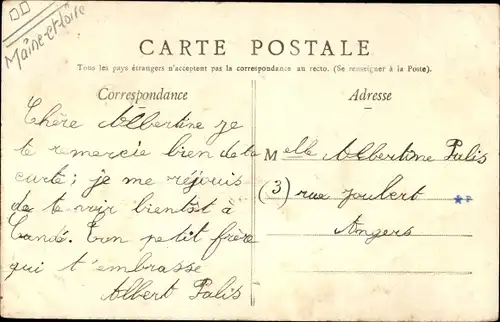 Maine-et-Loire
CARTE POSTALE
Tous les pays étrangers n'acceptent pas la correspondance au recto. (Se renseigner à la Poste).
Correspondance
Chère Albertine je
te remercie bien de ta
carte; je me réjouis
de te voir bientôt à
Candé. Ton petit frère
qui t'embrasse
Albert Palis
Adresse
Melle Albertine Palis
(3) rue Joubert
Angers